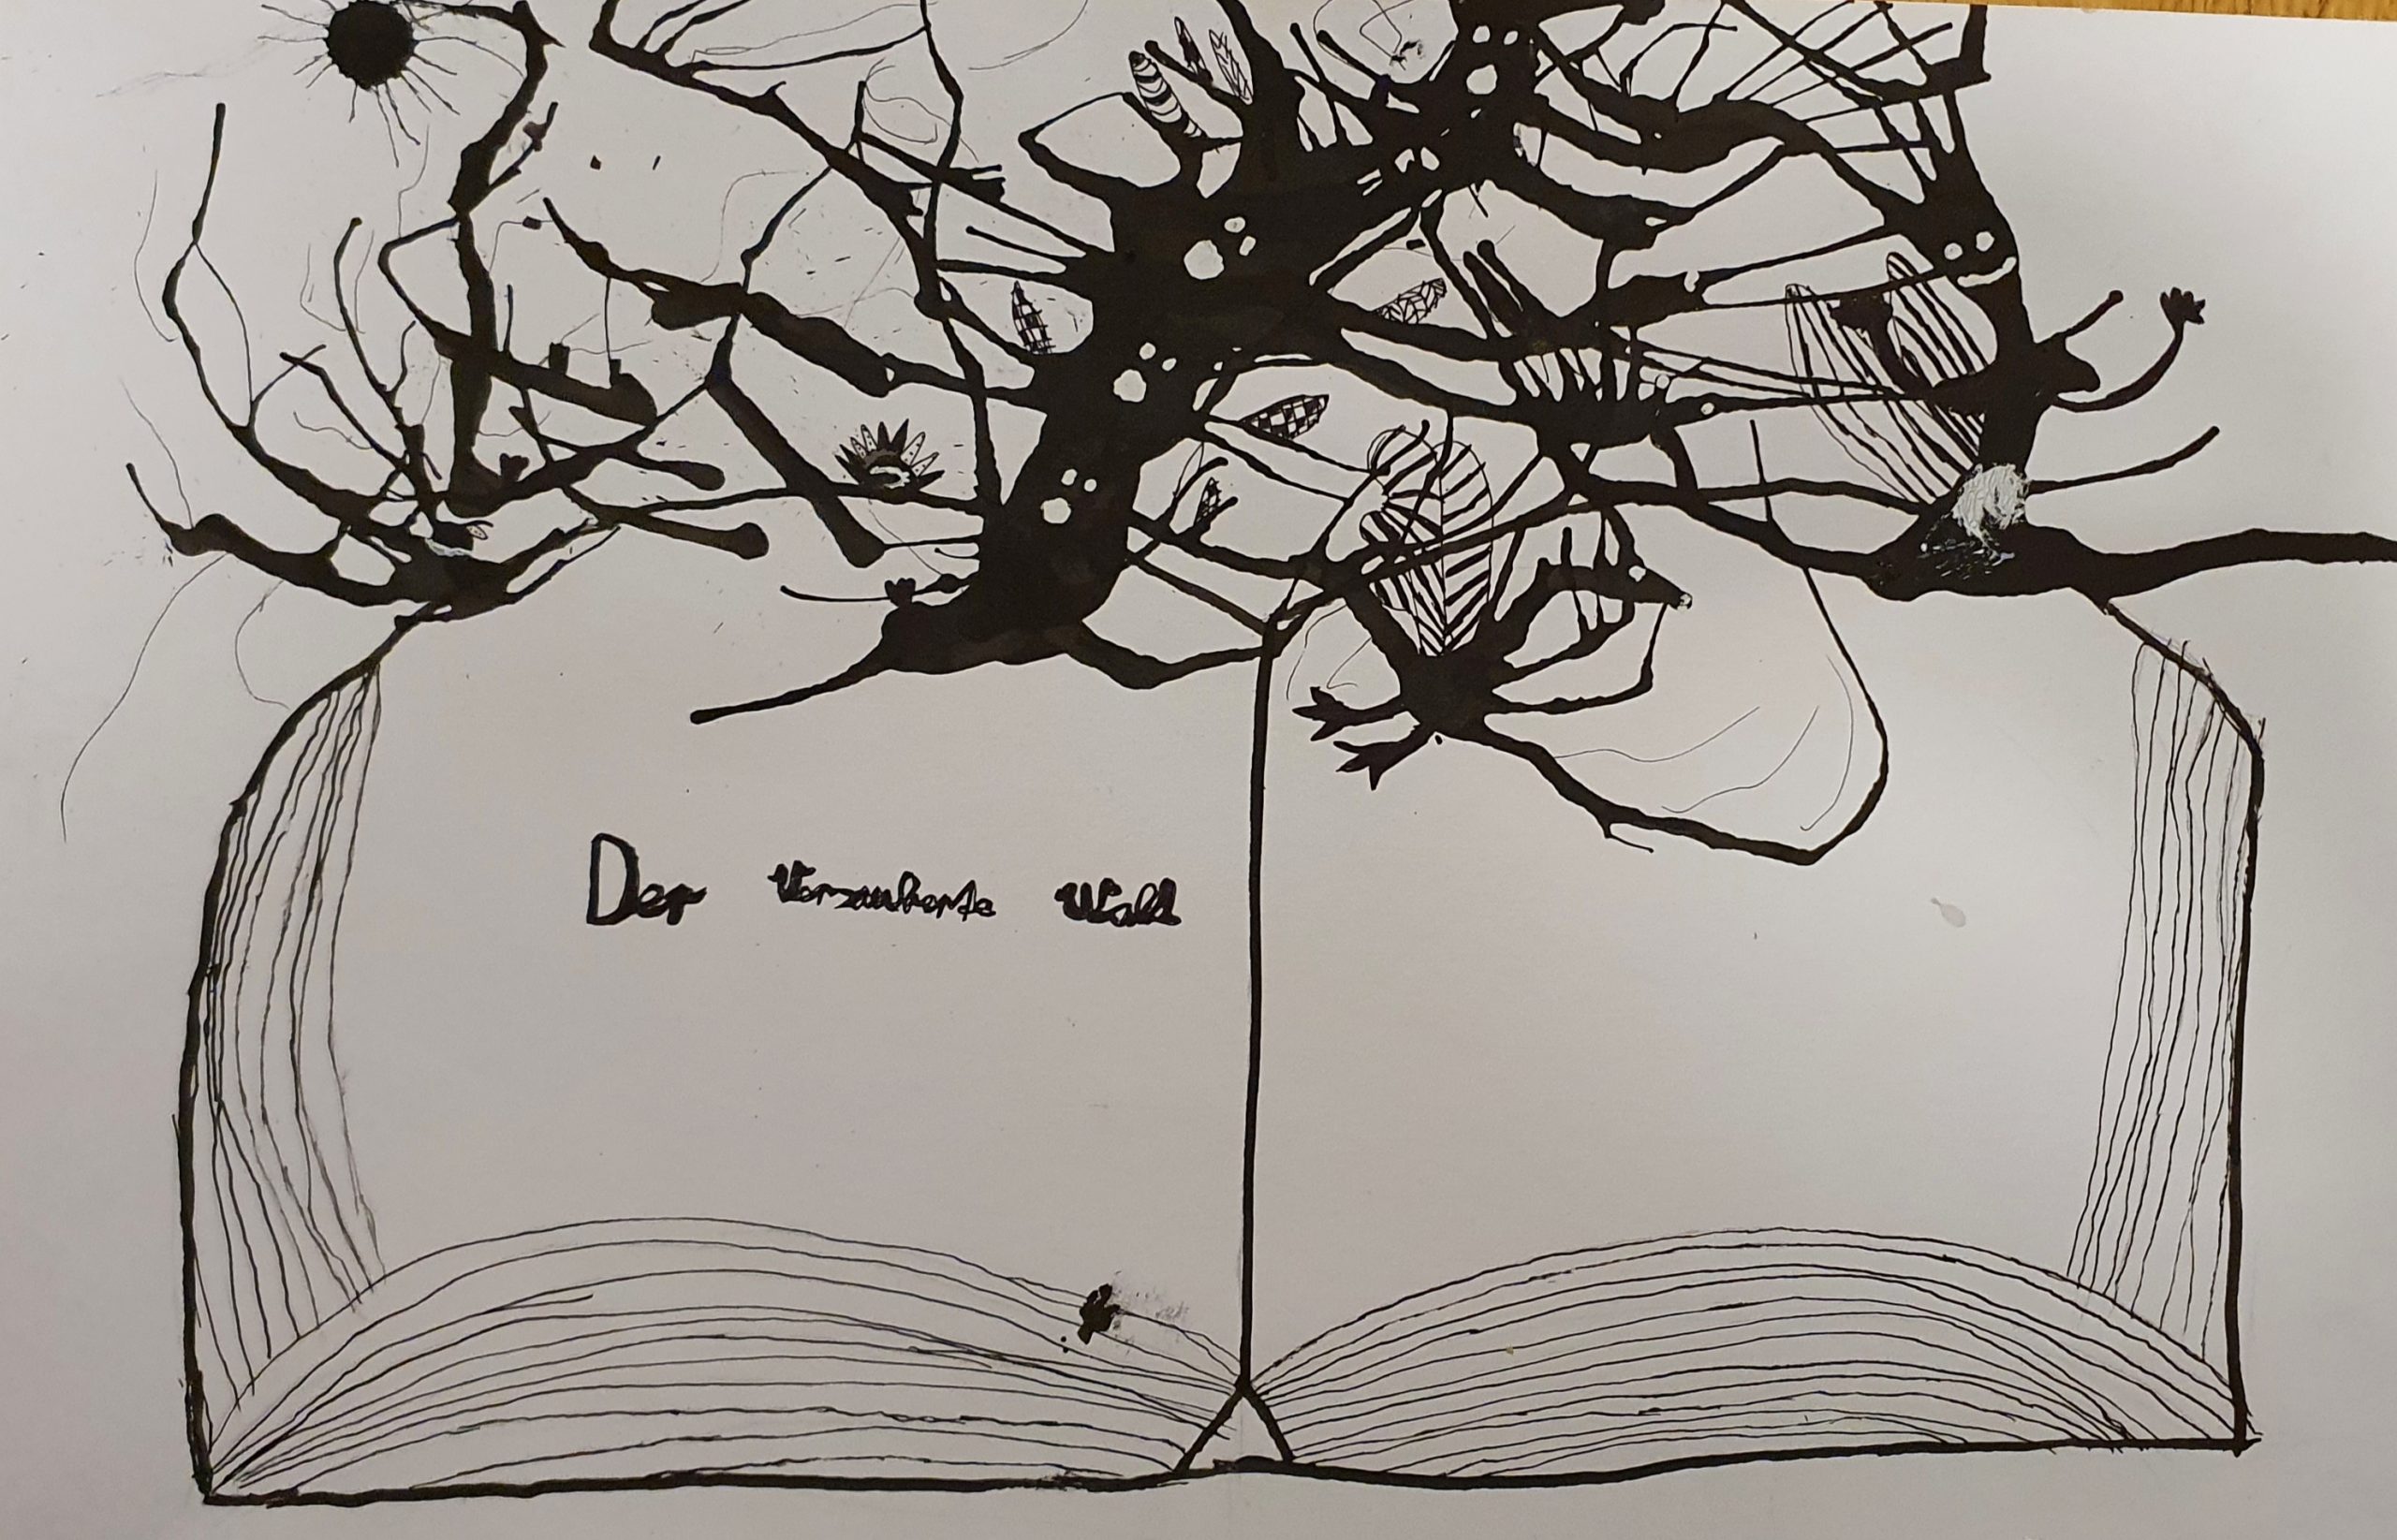 Der Verzauberte Wald